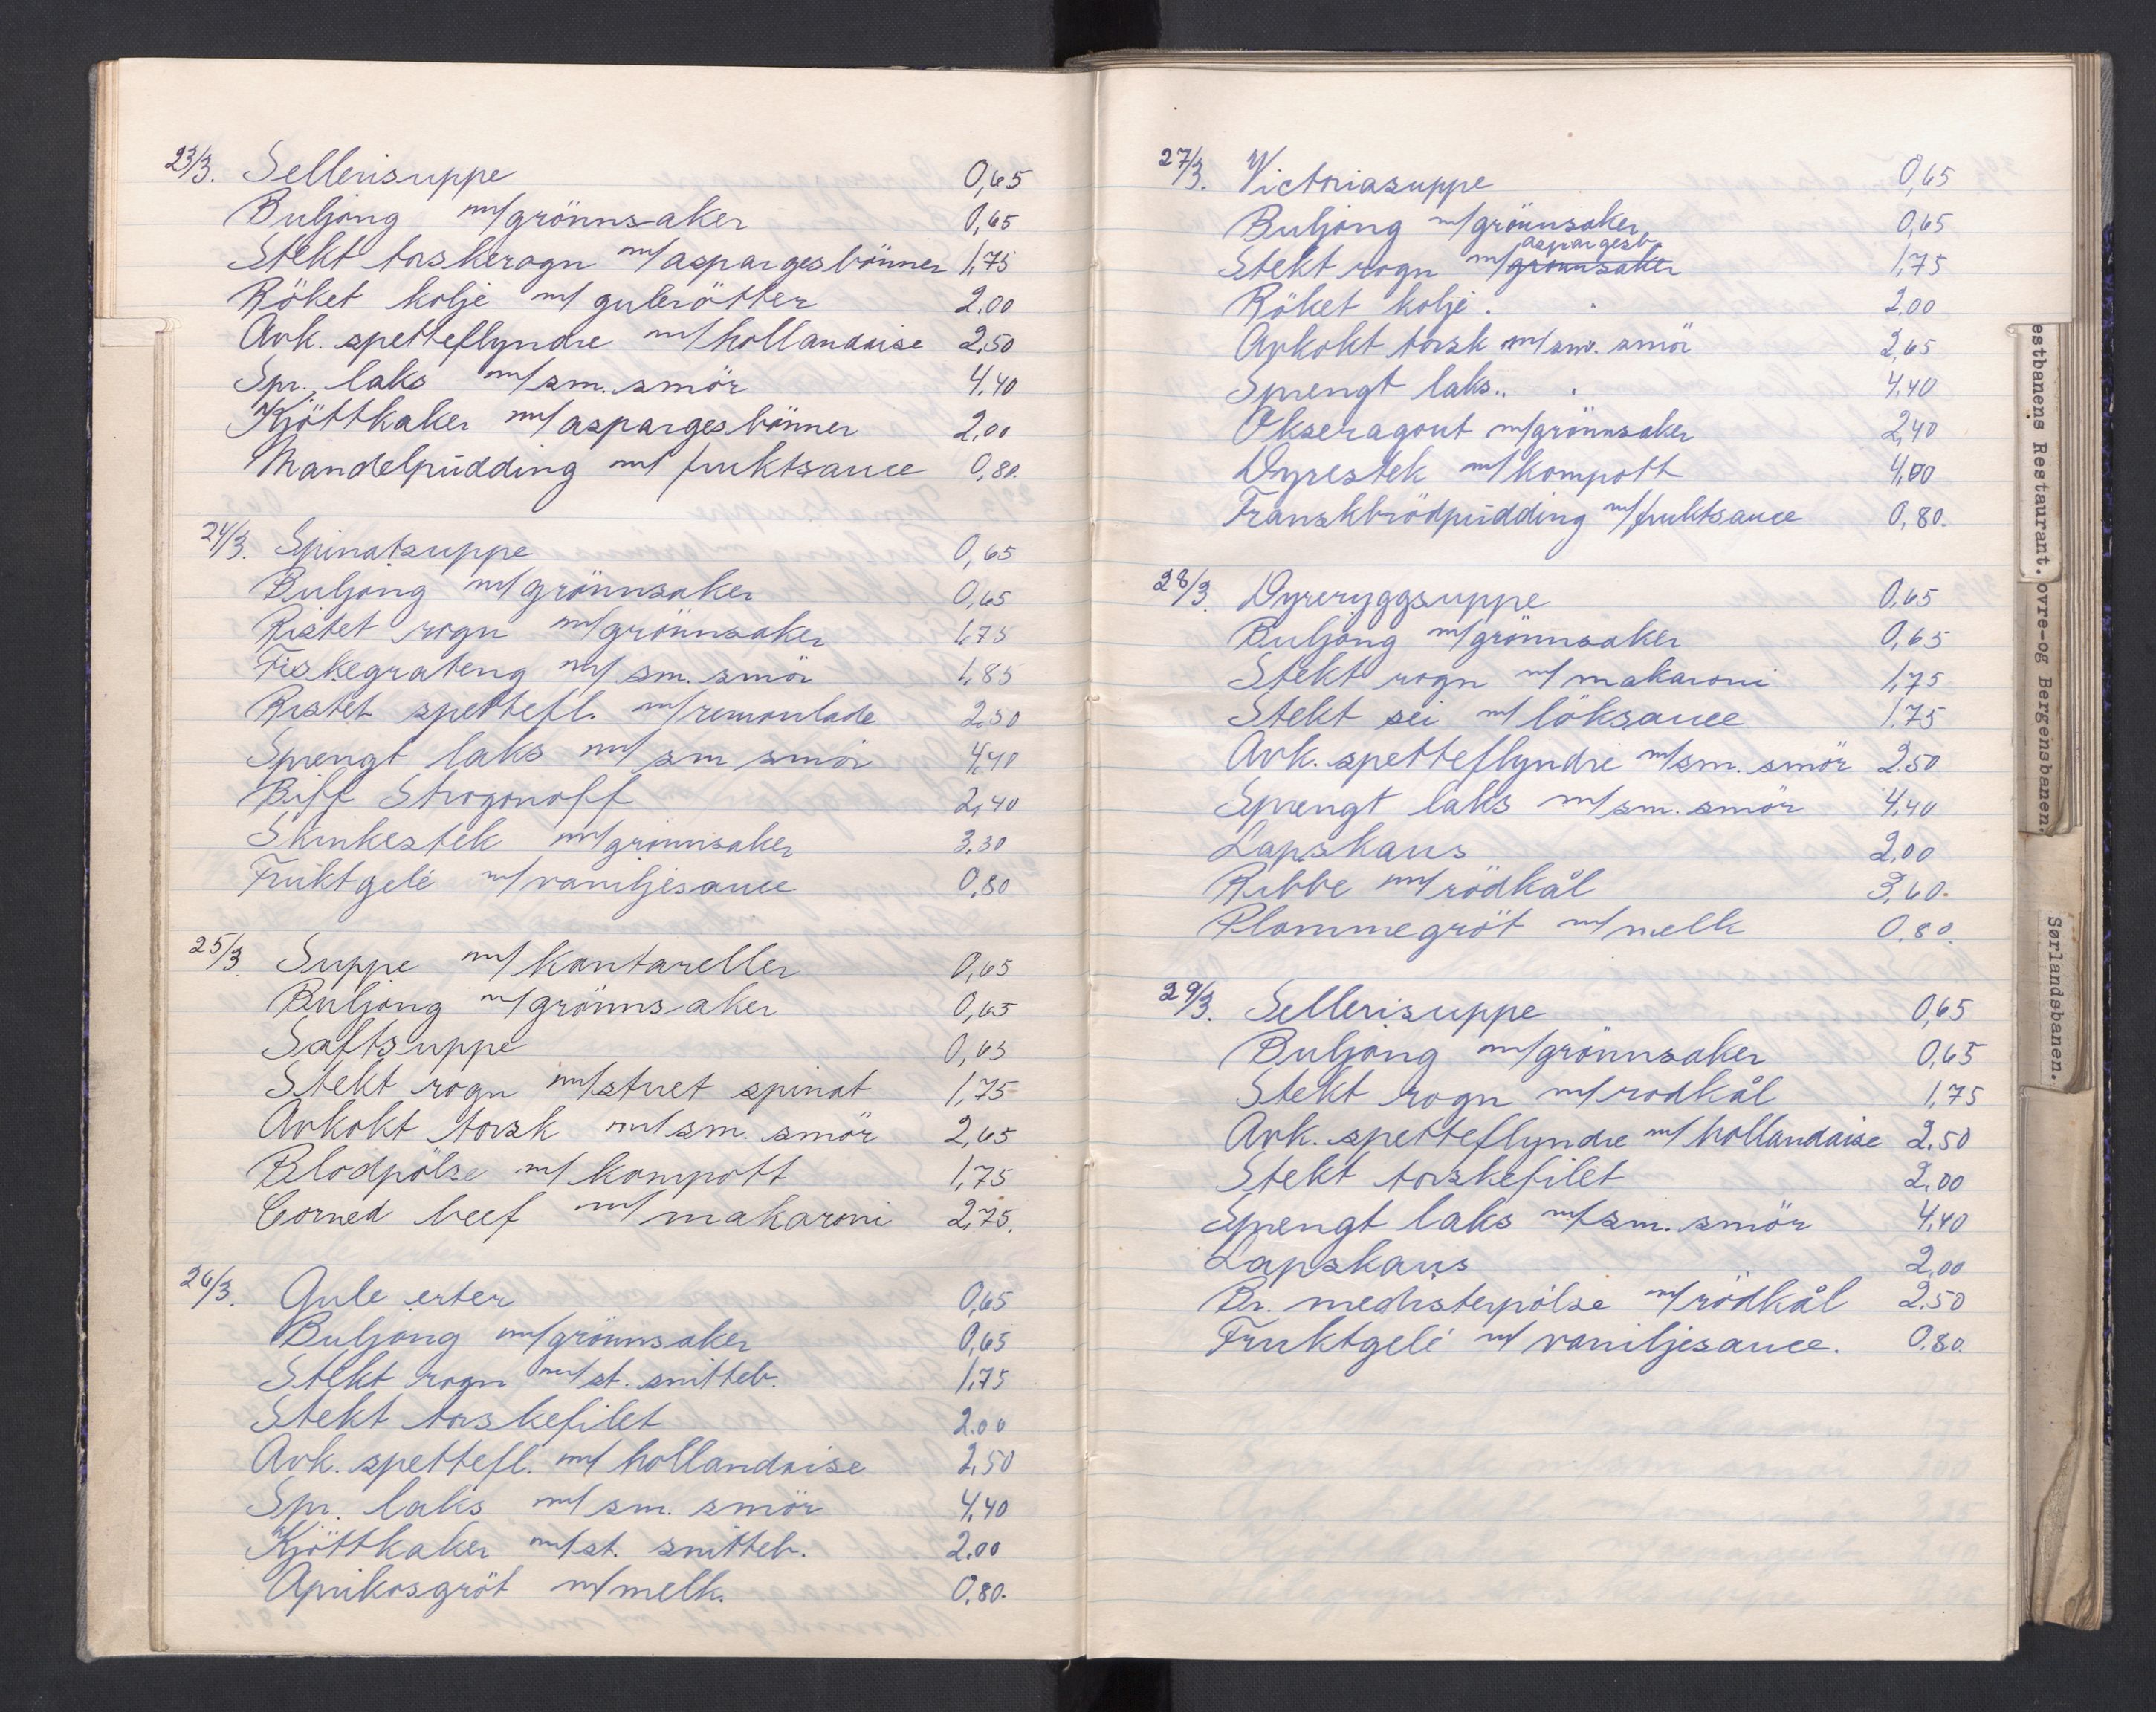 23/3. Sellerisuppe 0,65
Buljong m/grönnsaker 0,65
Stekt torskerogn m/aspargesbönner 1,75
Röket kolje m/ gulerötter 2.00
Avk. spetteflyndre m/hollandaise 2,50
Spr. laks m/sm. smör 4,40
Kjöttkaker m/aspargesbönner 2,00
Mandelpudding m/ fruktsauce 0,80.
24/3. Spinatsuppe 0,65
Buljong m/grönnsaker 0,65
Ristet rogn m/grönnsaker 1,75
Fiskegrateng m/ sm. smör 1,85
Ristet spettefl. m/remoulade 2,50
Sprengt laks m/ sm smör 4,40
Biff Strogonoff 2,40
Skinkestek m/grönnsaker 3.30
Fruktgelé m/vaniljesauce 0,80
25/3 Suppe m/kantareller 0,65
Buljong m/grönnsaker 0,65
Saftsuppe 0,65
Stekt rogn m/stuet spinat 1,75
Avkokt torsk m/sm. smör 2,65
Blodpölse m/ kompott 1,75
Corned beef m/makaroni 2,75.
26/3. Gule erter 0,65
Buljong m/grönnsaker 0,65
Stekt rogn m/st. snitteb. 1,75
Stekt torskefilet 2.00
Avk. spettefl. m/ hollandaise 2,50
Spr. laks m/ sm. smör 4,40
Kjöttkaker m/st. snitteb. 2.00
Aprikosgröt m/melk. 0,80.
27/3. Victoriasuppe 0,65
Buljong m/grönnsaker 0,65
aspargesb.
Stekt rogn m/grönnsaker 1,75
Röket kolje . . 2.00
Avkokt torsk m/sm. smör 2,65
Sprengt laks.. . 4.40
Okseragout m/grönnsaker 2,40
Dyrestek m/kompott 4,00
Franskbrödpudding m/fruktsauce 0,80.
28/3. Dyreryggsuppe 0,65
Buljong m/grönnsaker 0,65
Stekt rogn m/makaroni 1,75
Stekt sei m/löksauce 1.75
Avk. spetteflyndre m/sm. smör 2.50
Sprengt laks m/sm. smör 4.40
Lapskaus 2,00
Ribbe m/rödkål 3,60.
Plommegröt m/melk 0.80.
29/3. Sellerisuppe 0,65
Buljong m/grönnsaker 0,65
Stekt rogn m/rodkål 1,75
Avk. spetteflyndre m/ hollandaise 2.50
Stekt torskefilet 2.00
Sprengt laks m/sm. smör 4.40
Lapskaus 2,00
Br. medisterpölse m/rödkål 2.50
Fruktgelé m/ vaniljesauce. 0.80.
estbanens Restaurant.
ovre-og Bergensbanen.
Sørlandsbanen.